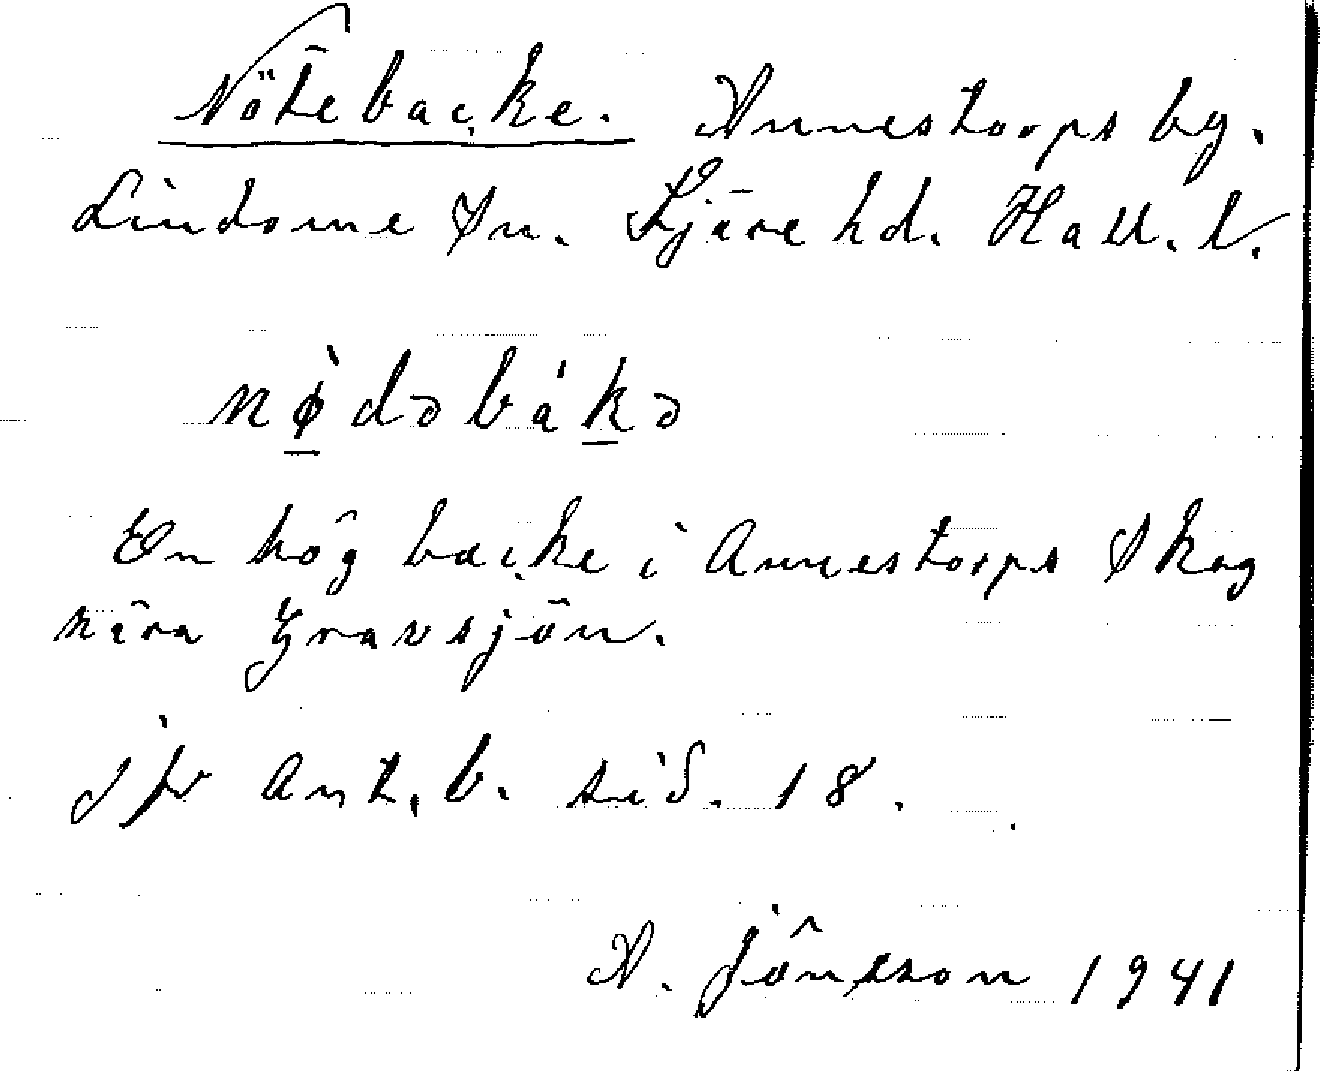 Nötebacke. Annestorps by.
Lindome sn. Fjäre hd. Hall. l.
nø̀dəbákə
En hög backe i Annestorps skog
nära Gravsjön.
jfr Ant. b. sid. 18.
A. Jönsson 1941